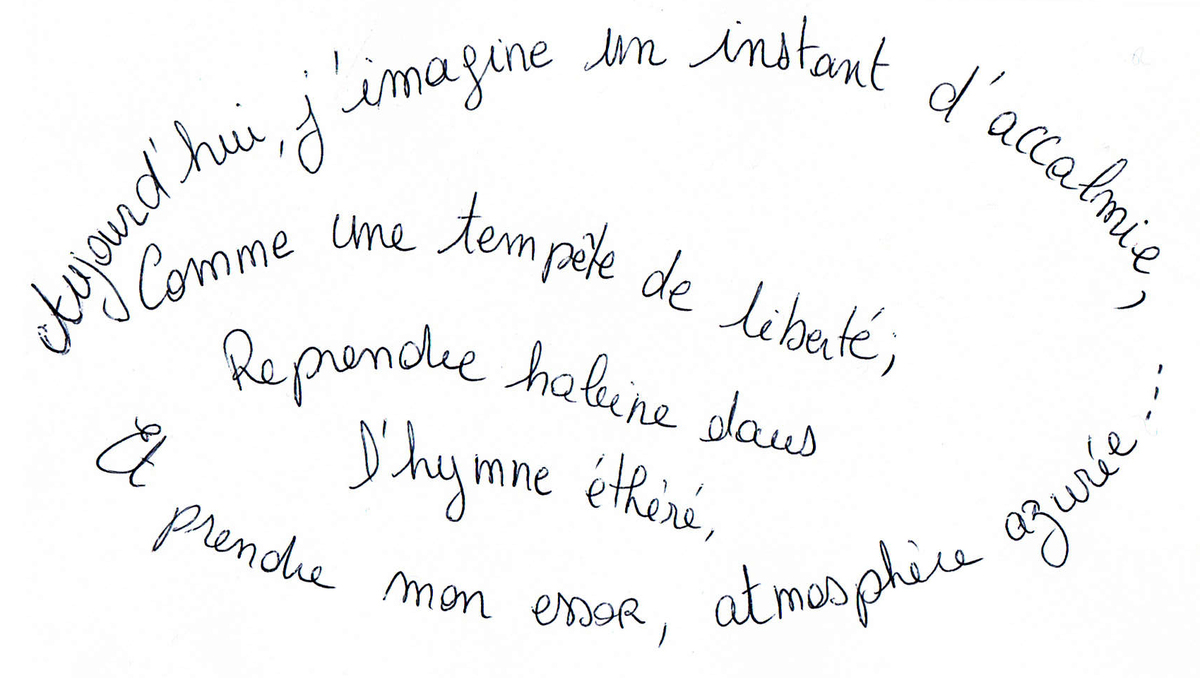 Aujourd'hui, j'imagine un instant d'accalmie,
Comme une tempête de liberté;
Reprendre haleine dans
l'hymne éthéré,
Et prendre mon essor, atmosphère azurée...